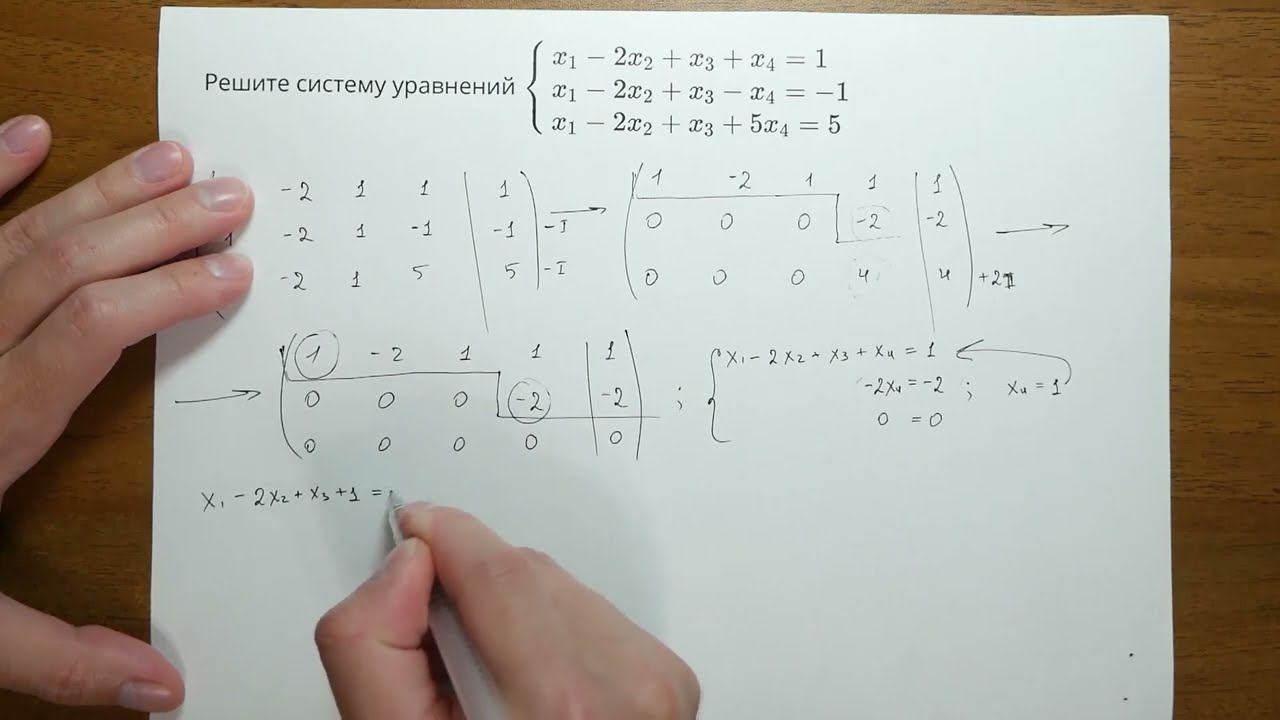 Решите систему уравнений
x₁ − 2x₂ + x₃ + x₄ = 1
x₁ − 2x₂ + x₃ − x₄ = −1
x₁ − 2x₂ + x₃ + 5x₄ = 5
-2 1 1 | 1
1 -2 1 -1 | -1 -I
-2 1 5 | 5 -I
1 -2 1 1 | 1
0 0 0 -2 | -2
0 0 0 4 | 4 +2II
1 -2 1 1 | 1
0 0 0 -2 | -2
0 0 0 0 | 0
;
x₁ - 2x₂ + x₃ + x₄ = 1
-2x₄ = -2 ; x₄ = 1
0 = 0
x₁ - 2x₂ + x₃ + 1 =